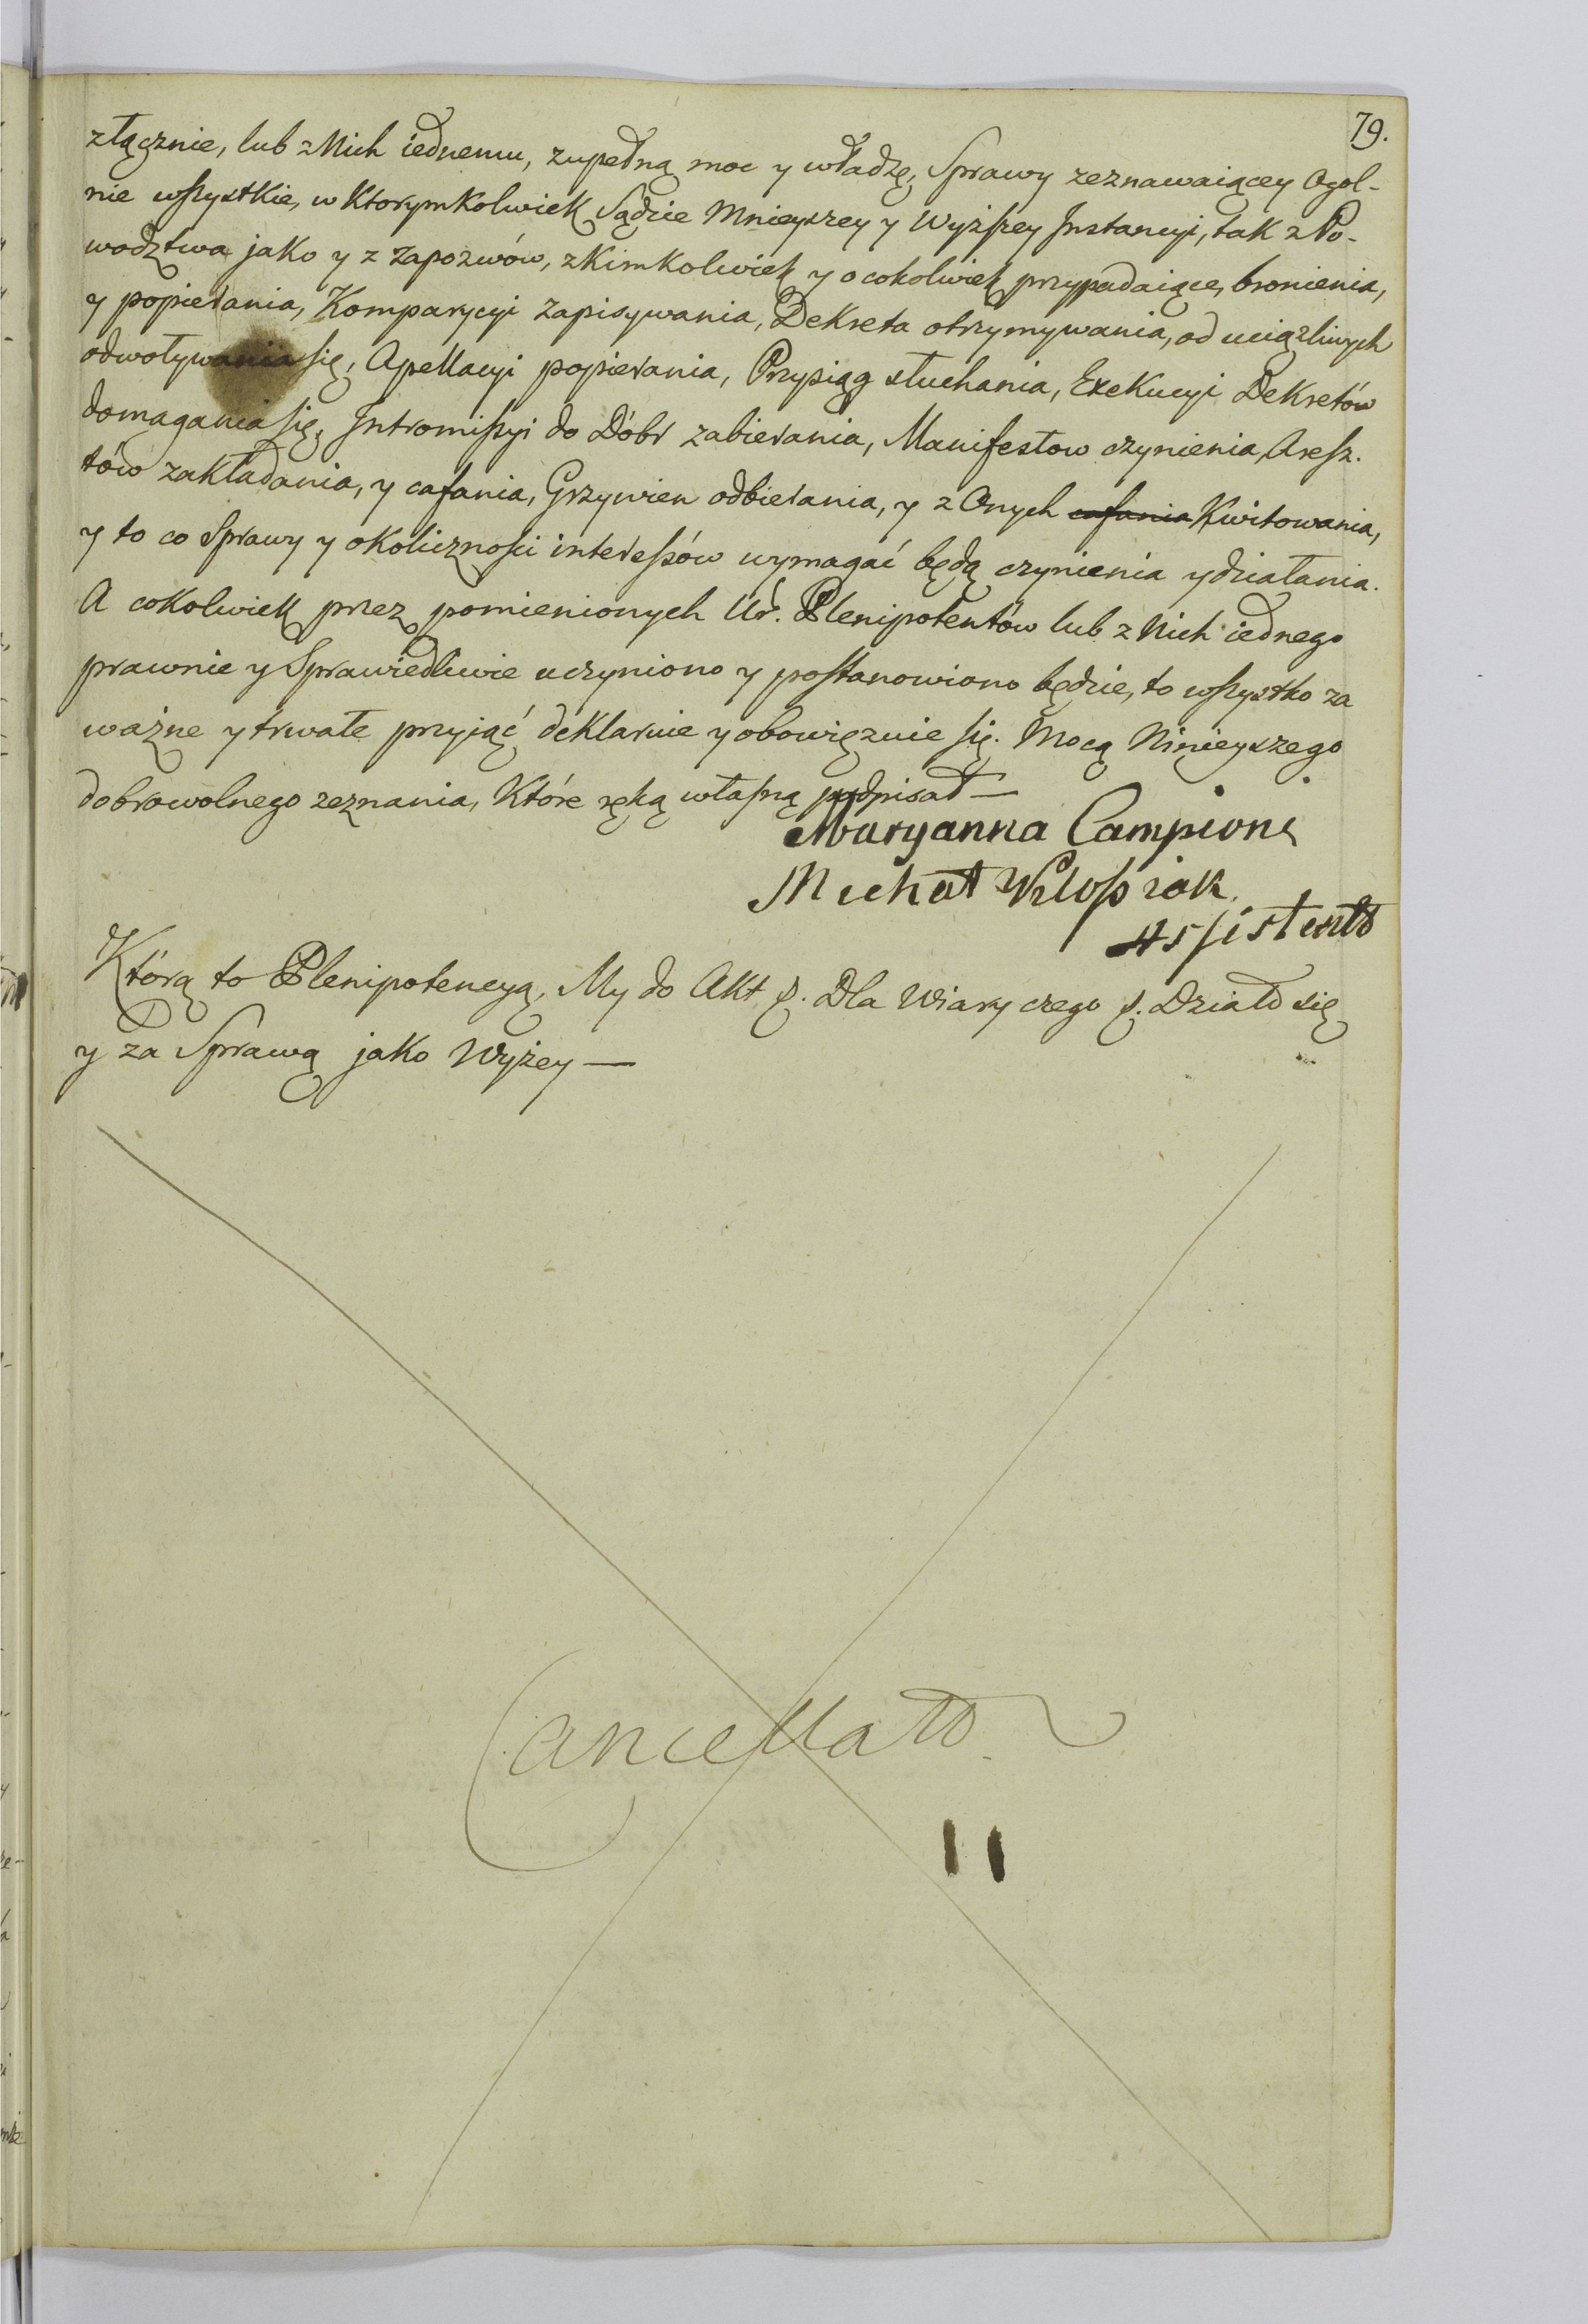 79.
złącznie, lub z Nich iednemu, zupełną moc y władzę, Sprawy zeznawaiącey Ogol-
nie wszystkie, w Ktorymkolwiek Sądzie Mnieyszey y Wyższey Instancyi, tak z Po-
wodztwa jako y z Zapozwów, z Kimkolwiek y o cokolwiek przypadaiące, bronienia,
y popierania, Komparycyi zapisywania, Dekreta otrzymywania, od uciążliwych
odwoływania się, Apellacyi popierania, Przysiąg słuchania, Exekucyi Dekretów
domagania się, Intromissyi do Dóbr zabierania, Manifestow czynienia, Aresz-
tów zakładania, y cafania, Grzywien odbierania, y z Onych cafania Kwitowania,
y to co Sprawy y okoliczności interessów wymagać będą czynienia y działania.
A cokolwiek przez pomienionych Ur. Plenipotentów lub z Nich iednego
prawnie y Sprawiedliwie uczyniono y postanowiono będzie, to wszystko za
ważne y trwałe przyjąć deklaruie y obowięzuie się. Mocą Ninieyszego
dobrowolnego zeznania, Które ręką własną podpisał —
Maryanna Campioni
Michał
Assistent
Którą to Plenipotencyą, My do Akt p. Dla Wiary czego p. Działo się
y za Sprawą jako Wyżey —
Cancellato